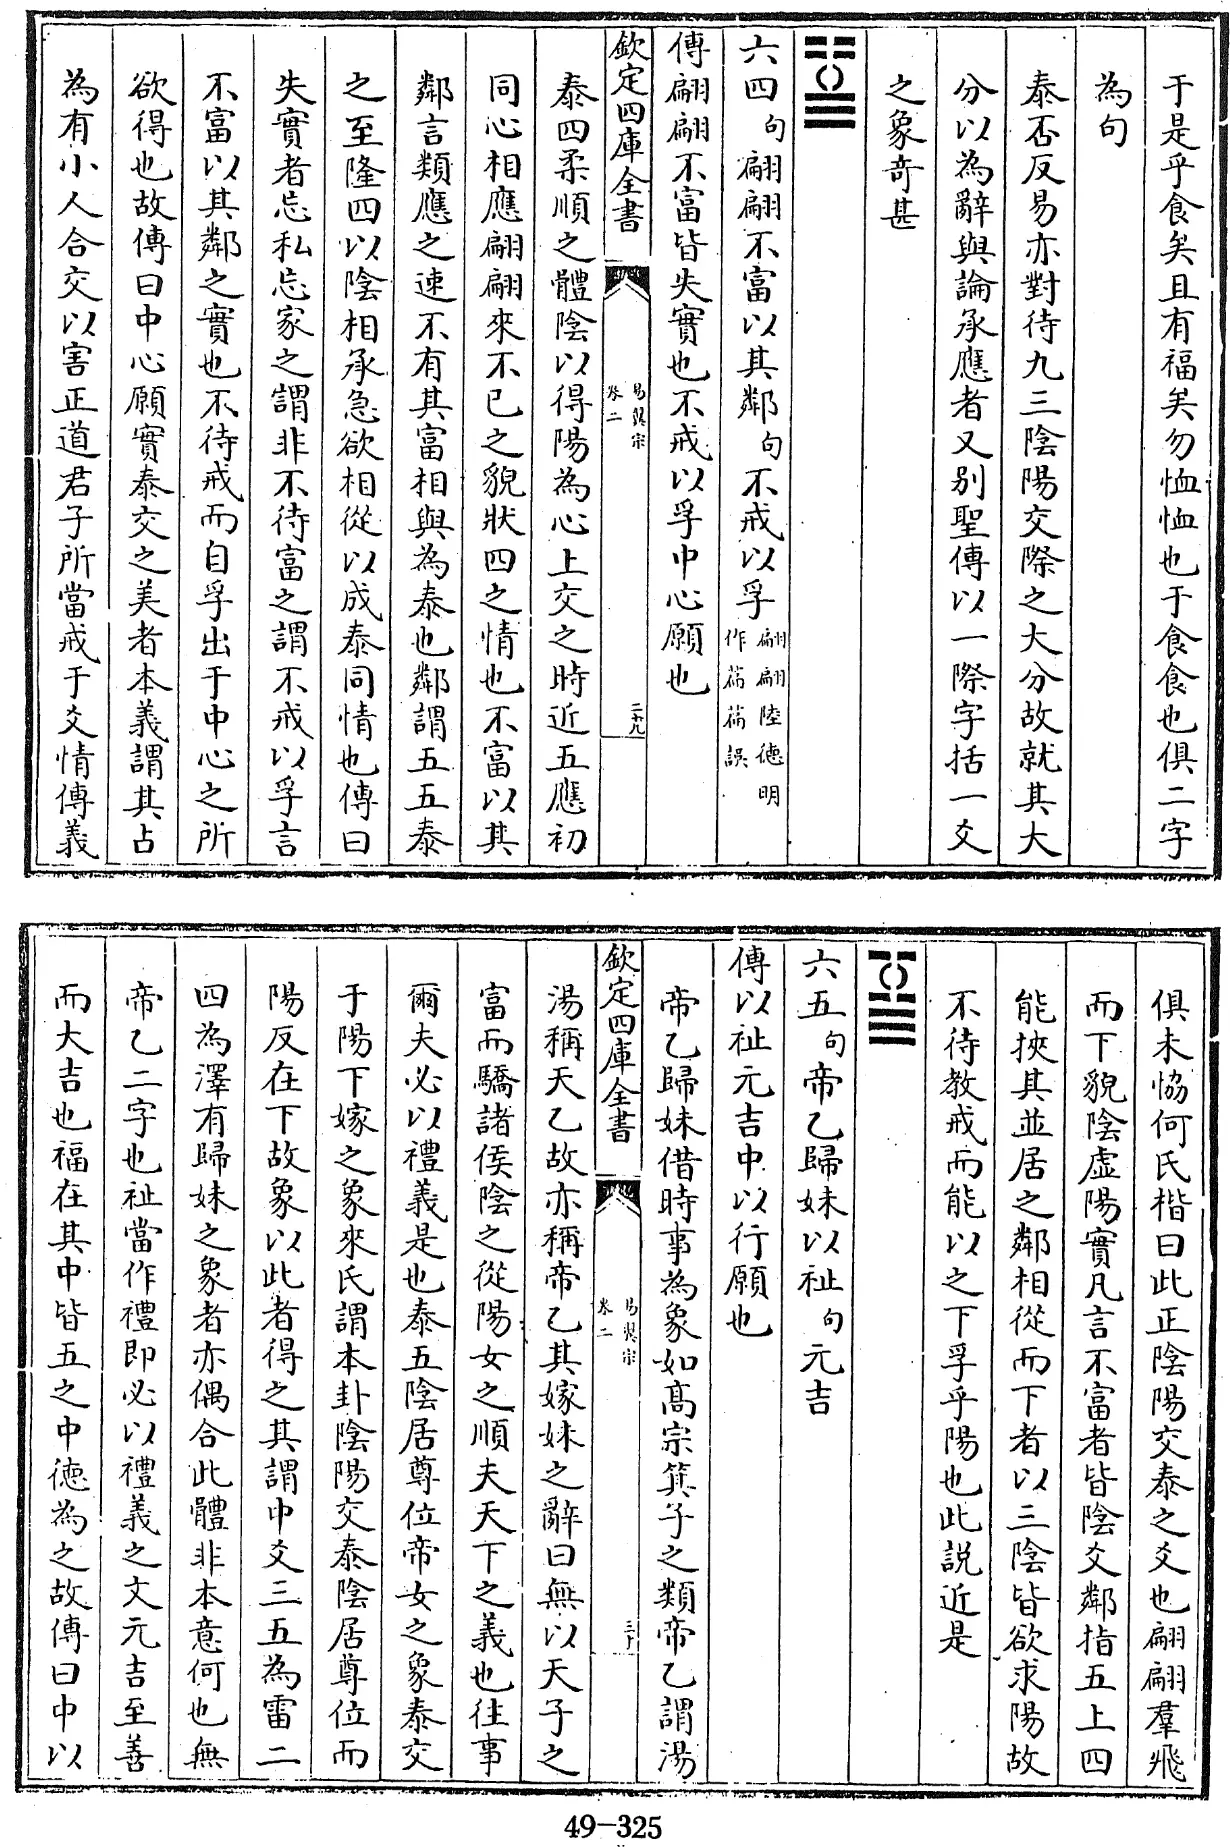 于是乎食矣且有福矣勿恤恤也于食食也俱二字
為句
泰否反易亦對待九三陰陽交際之大分故就其大
分以為辭與論承應者又別聖傳以一際字括一爻
之象奇甚
六四句翩翩不富以其鄰句不戒以孚翩翩陸德明作萹萹誤
傳翩翩不富皆失實也不戒以孚中心願也
欽定四庫全書 易翼宗 卷二 二十九
泰四柔順之體陰以得陽為心上交之時近五應初
同心相應翩翩來不已之貌狀四之情也不富以其
鄰言類應之速不有其富相與為泰也鄰謂五五泰
之至隆四以陰相承急欲相從以成泰同情也傳曰
失實者忘私忘家之謂非不待富之謂不戒以孚言
不富以其鄰之實也不待戒而自孚出于中心之所
欲得也故傳曰中心願實泰交之美者本義謂其占
為有小人合交以害正道君子所當戒于爻情傳義
俱未恊何氏楷曰此正陰陽交泰之爻也翩翩羣飛
而下貌陰虛陽實凡言不富者皆陰爻鄰指五上四
能挾其並居之鄰相從而下者以三陰皆欲求陽故
不待教戒而能以之下孚乎陽也此説近是
六五句帝乙歸妹以祉句元吉
傳以祉元吉中以行願也
帝乙歸妹借時事為象如髙宗箕子之類帝乙謂湯
欽定四庫全書 易翼宗 卷二 三十
湯稱天乙故亦稱帝乙其嫁妹之辭曰無以天子之
富而驕諸侯陰之從陽女之順夫天下之義也往事
爾夫必以禮義是也泰五陰居尊位帝女之象泰交
于陽下嫁之象來氏謂本卦陰陽交泰陰居尊位而
陽反在下故象以此者得之其謂中爻三五為雷二
四為澤有歸妹之象者亦偶合此體非本意何也無
帝乙二字也祉當作禮即必以禮義之文元吉至善
而大吉也福在其中皆五之中德為之故傳曰中以
49-325